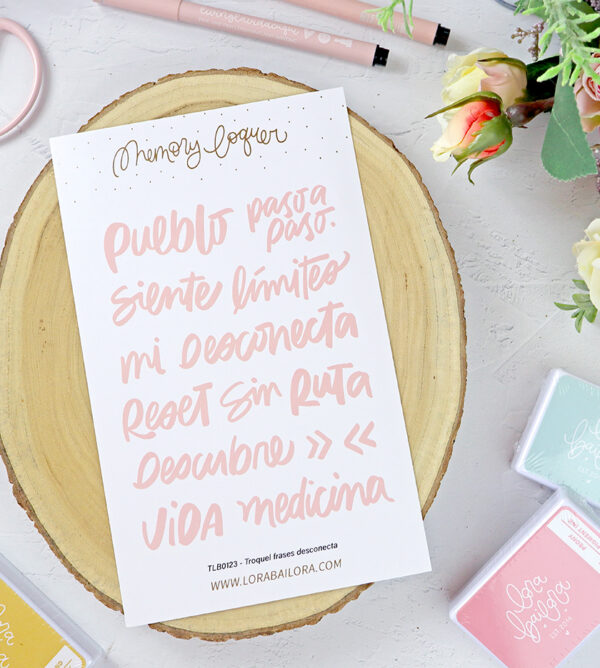 memory loquer
pueblo paso a
paso.
siente límites
mi Desconecta
Reset sin Ruta
Descubre » «
ViDA medicina
TLB0123 - Troquel frases desconecta
WWW.LORABAILORA.COM
lora
bailora
EST 2014
PEONY
PIGMENT INK